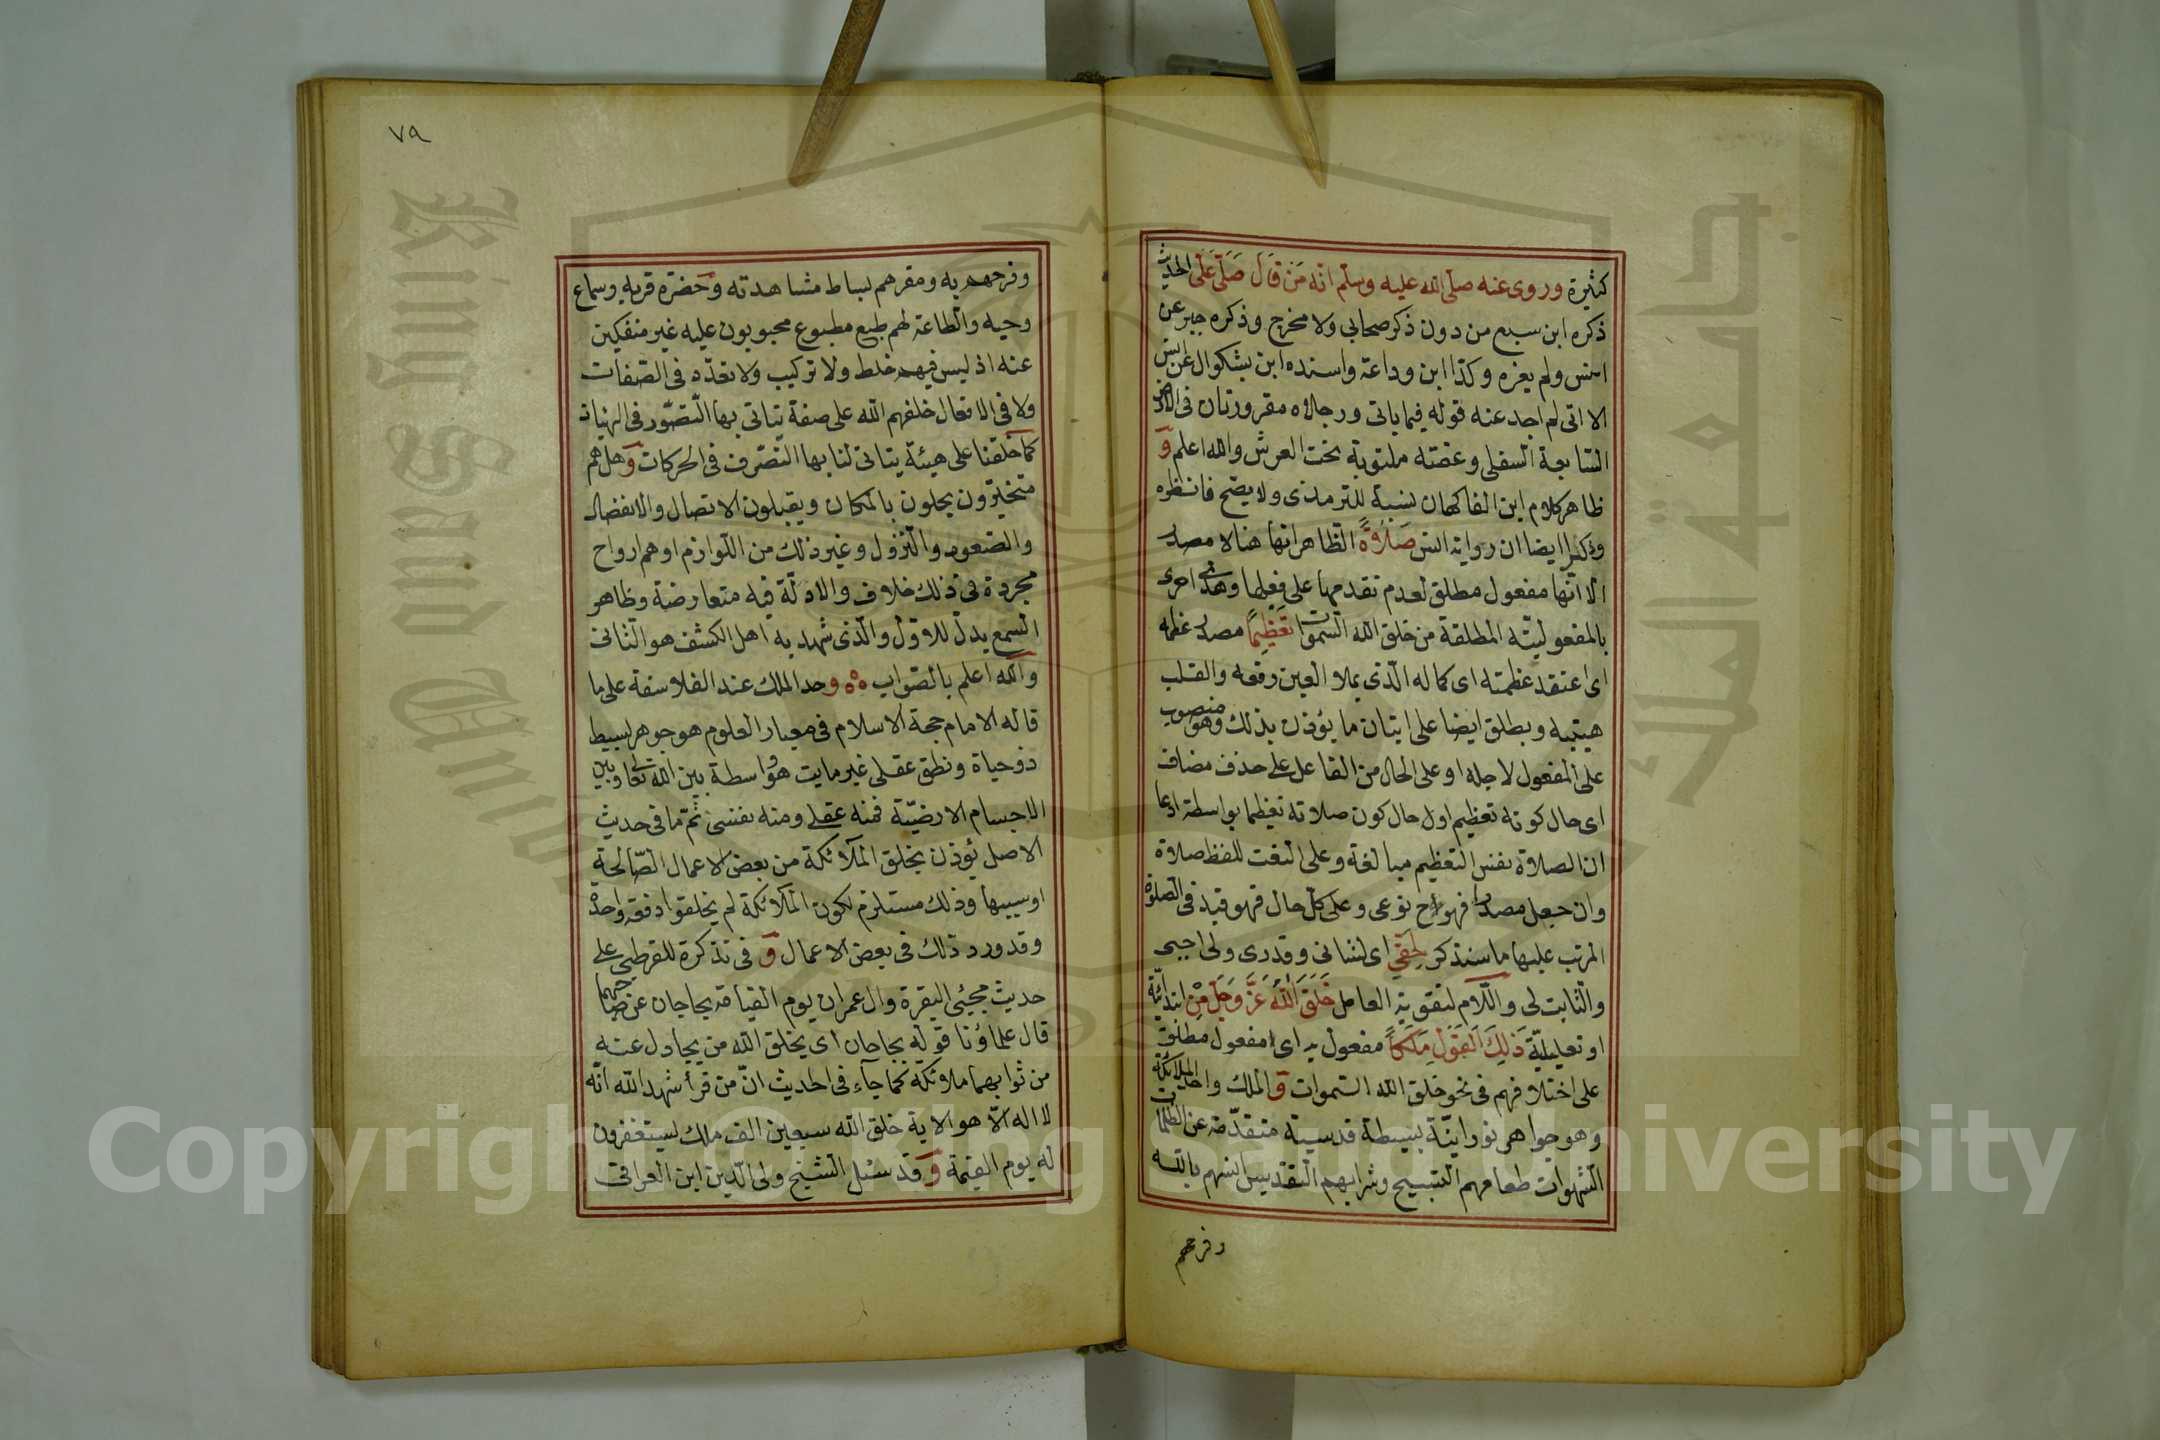 كثيرة وروى عنه صلى الله عليه وسلم انه من قال صلى على الحديث
ذكره ابن سبع من دون ذكر صحابي ولا مخرج وذكره جبر عن
انس ولم يعزه وكذا ابن وداعة واسنده ابن بشكوال عن انس
الا اني لم اجد عنه قوله فيما ياتي ورجلاه مقرورتان في الارض
السابعة السفلى وعنقه ملتوية تحت العرش والله اعلم و
ظاهر كلام ابن الفاكهان نسبة للترمذي ولا يصح فانظره
وذكر ايضا ان رواية انس صلاة الظاهر انها هنا لا مصدر
الا انها مفعول مطلق لعدم تقدمها على فعلها وهذا احرى
بالمفعولية المطلقة من خلق الله السموات تعظيما مصدر عظمه
اى اعتقد عظمته اى كماله الذى يملا العين وقعه والقلب
هيبته ويطلق ايضا على اتيان ما يؤذن بذلك وهو منصوب
على المفعول لاجله او على الحال من الفاعل على حذف مضاف
اى حال كونه تعظيم اول حال كون صلاته تعظيما بواسطة ادعا
ان الصلاة نفس التعظيم مبالغة وعلى النعت للفظ صلاة
وان جعل مصدرا فهو ح نوعى وعلى كل حال فهو قيد فى الصلوة
المرتب عليها ما سنذكر لحقى اى لشانى وقدرى ولى اجبى
والثابت لى واللام لتقوية العامل خلق الله عز وجل من ابتدائية
او تعليلية ذلك القول ملكا مفعول به اى مفعول مطلق
على اختلافهم فى نحو خلق الله السموات و الملك واحد الملائكة
وهو جواهر نورانية بسيطة قدسية متقدسة عن الظلمات
الشهوات طعامهم التسبيح وشرابهم التقديس انسهم بالله
وفرحهم
٧٩
وفرحهم به ومقرهم بساط مشاهدته وحضرة قربه وسماع
وحيه والطاعة لهم طبع مطبوع مجبوبون عليه غير منفكين
عنه اذ ليس فيهم خلط ولا تركيب ولا تعدد فى الصفات
ولا فى الافعال خلقهم الله على صفة يتاتى بها التصور فى الهيات
كما خلقنا على هيئة يتاتى لنا بها التصرف فى الحركات و هل هم
متحيزون يحلون بالمكان ويقبلون الاتصال والانفصال
والصعود والنزول وغير ذلك من اللوازم او هم ارواح
مجردة فى ذلك خلاف والادلة فيه متعارضة وظاهر
السمع يدل للاول والذى شهد به اهل الكشف هو الثانى
والله اعلم بالصواب وحد الملك عند الفلاسفة على ما
قاله الامام حجة الاسلام فى معيار العلوم هو جوهر بسيط
ذو حياة ونطق عقلى غير مايت هو واسطة بين الله تعالى وبين
الاجسام الارضية فمنه عقلى ومنه نفسى ثم ما فى حديث
الاصل يؤذن بخلق الملائكة من بعض الاعمال الصالحة
او سببها وذلك مستلزم لكون الملائكة لم يخلقوا دفعة واحدة
وقد ورد ذلك فى بعض الاعمال و فى تذكرة للقرطبى على
حديث مجيئى البقرة وال عمران يوم القيامة يحاجان عن صاحبهما
قال علماؤنا قوله يحاجان اى يخلق الله من يجادل عنه
من ثوابهما ملائكة كما جاء فى الحديث ان من قرأ شهد الله انه
لا اله الا هو الاية خلق الله سبعين الف ملك يستغفرون
له يوم القيمة و قد سئل الشيخ ولى الدين ابن العراقى
Copyright © King Saud University